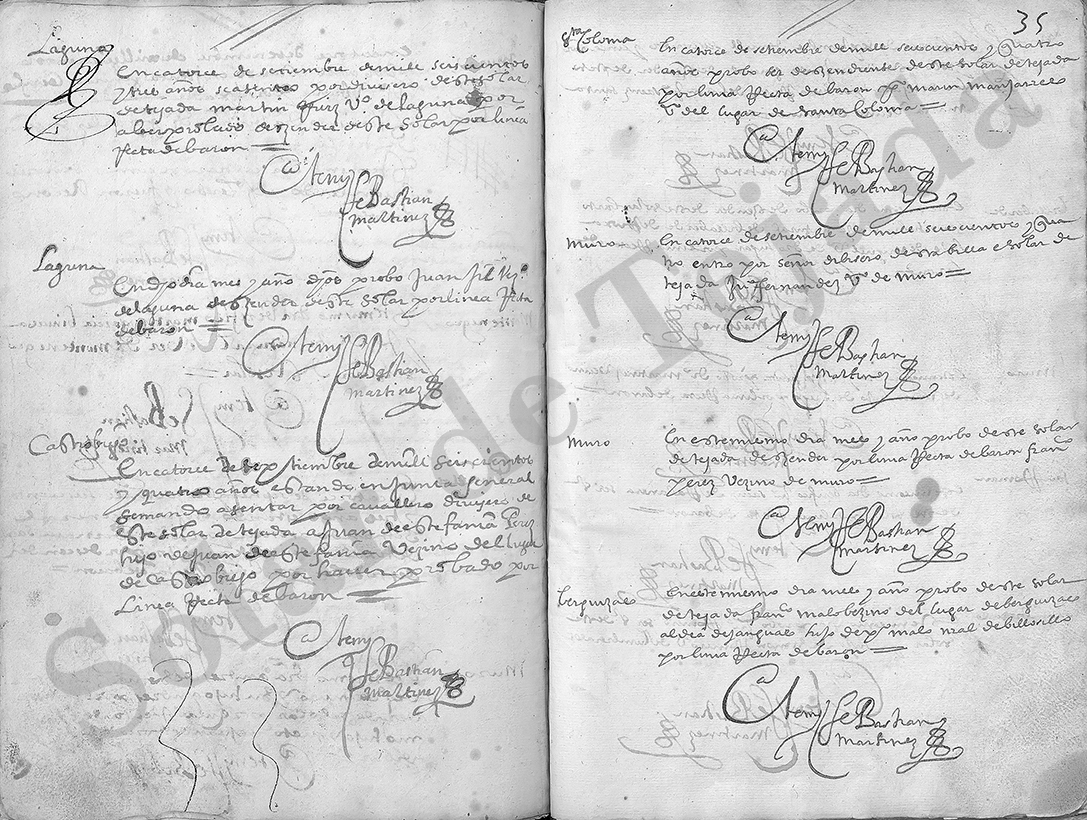 Laguna
En catorce de setiembre de mill seiscientos
y tres años se asento por divisero deste solar
de tejada martin ruiz vº de laguna por
aber probado dezender deste solar por linea
Recta de baron
Ante my
seBastian
martinez
Laguna
En dho dia mes y año dhos probo Juan
de laguna deszender deste solar por linea Recta
de baron
Ante my
seBastian
martinez
Castrobiejo
En catorce de septiembre de mill seiscientos
y quatro años estando en junta general
se mando asentar por cavallero divisero de
este solar de tejada a Juan de estefania perez
hijo de Juan de estefania vezino del lugar
de castrobiejo por haver probado por
Linea Recta de baron
Ante my
seBastian
martinez
35
Sta Coloma
En catorce de setiembre de mill seiscientos y quatro
años probo ser deszendiente deste solar de tejada
por linia Recta de baron pº marin manzanares
vº del lugar de santa Coloma
Ante my
seBastian
martinez
muro
En catorce de setiembre de mill seiscientos y qua
tro entro por señor dibisero desta billa e solar de
tejada juº fernandez vº de muro
Ante my
seBastian
martinez
muro
En este mismo dia mes y año probo deste solar
de tejada deszender por linia Recta de baron franº
perez vezino de muro
Ante my
seBastian
martinez
En este mismo dia mes y año probo deste solar
de tejada franº malo bezino del lugar de
aldea de hijo de pº malo
por linia Recta de baron
Ante my
seBastian
martinez
Solar de Tejada